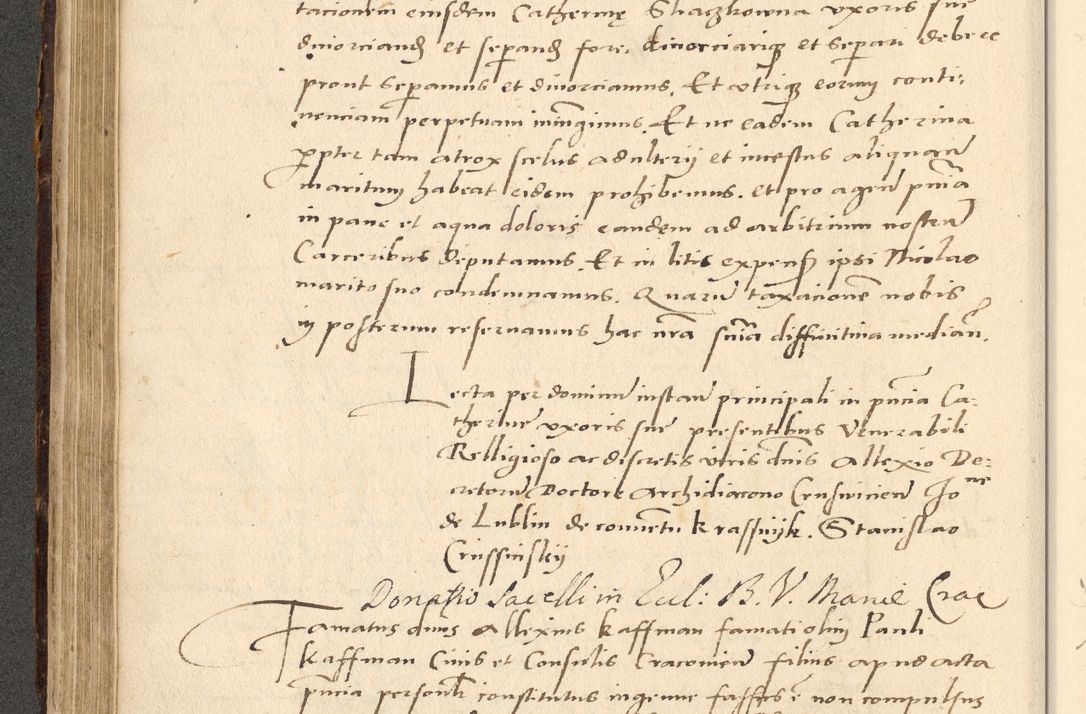 tacionem eiusdem Catherinę Straczkowna vxoris sue
diuorciand et sepand fore. diuorciariq et separi debere
prout sepamus et diuorciamus. Et vtriq eorum conti-
nenciam perpetuam iniungimus. Et ne eadem Catherina
ppter tam atrox scelus adulterij et incestus aliquem
maritum habeat eidem prohibemus. et pro agen pnia
in pane et aqua doloris eandem ad arbitrium nostrum
Carceribus deputamus. Et in litis expens ipsi Nicolao
marito suo condemnamus. Quarum taxacionem nobis
in posterum reseruamus hac nra snia diffinitiua median.
Lecta per dominum instan principali in pncia Ca-
therine vxoris sue presentibus Venerabili
Relligioso ac discretis viris dnis Allexio De-
cretorum Doctore Archidiacono Crusuicien Jone
de Lublin de conuentu Krassnyk. Stanislao
Crussinskij
Donatio Sacelli in Eccl: B. V. Mariæ Crac
Famatus dnus Allexius Kaffman famati olim Pauli
Kaffman Ciuis et Consulis Cracouien filius apud acta
pncia personalr constitutus ingenue fassus e non compulsus